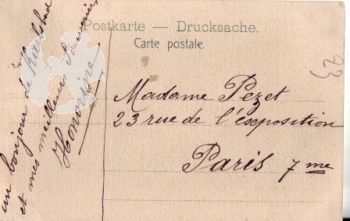 Postkarte — Drucksache.
Carte postale.
un bonjour de
et mes meilleurs souvenirs
Honorine
Madame Pezet
23 rue de l'exposition
Paris 7me